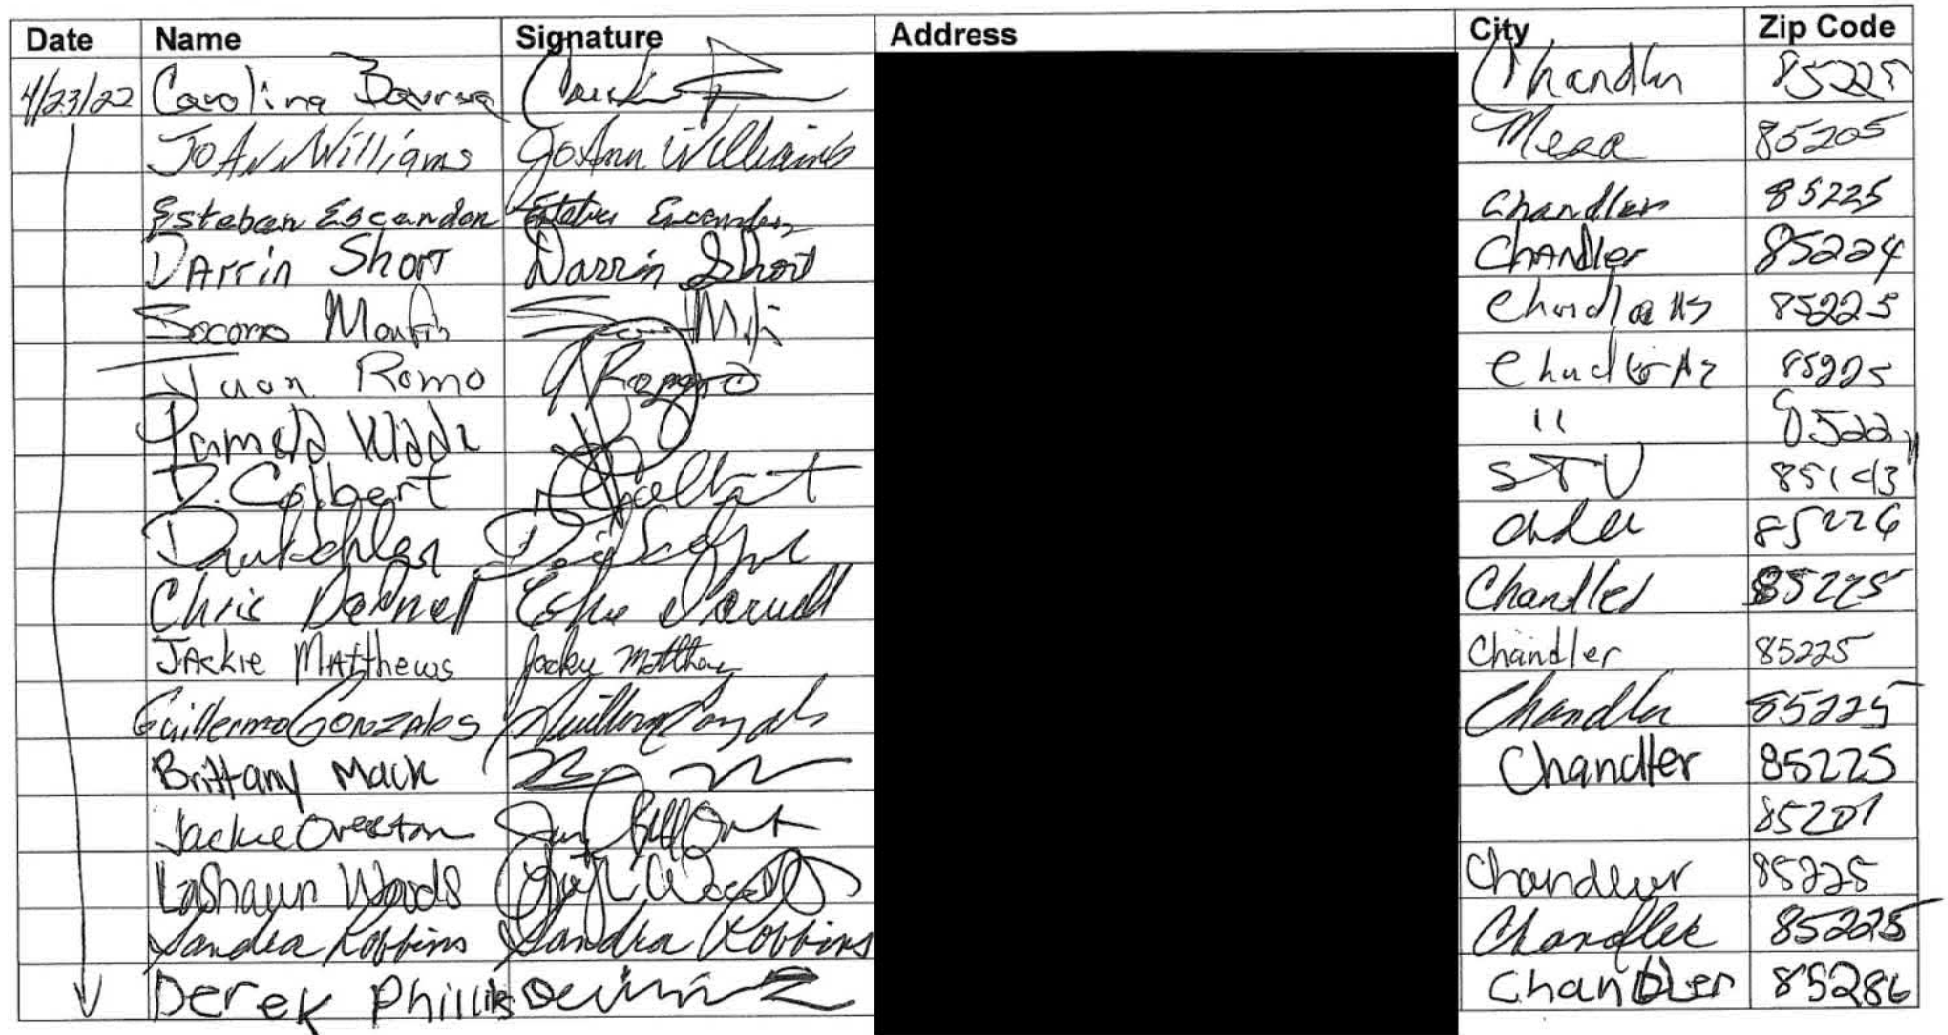 Date Name Signature Address City Zip Code
4/23/22 Carolina Chandler 85225
JoAnn Williams JoAnn Williams Mesa 85205
Esteban Escandon Esteban Escandon Chandler 85225
Darrin Short Darrin Short Chandler 85224
Socorro 85225
Juan Romo Romo 85225
" 8522
B. Colbert Colbert STV 85143
85226
Chris Chandler 85225
Jackie Matthews Jackie Matthews Chandler 85225
Guillermo Gonzales Guillermo Gonzales Chandler 85225
Brittany Mack Chandler 85225
Jackie Overton 85201
LaShawn Woods Woods Chandler 85225
Sandra Robbins Sandra Robbins Chandler 85225
Derek Phillis Chandler 85286